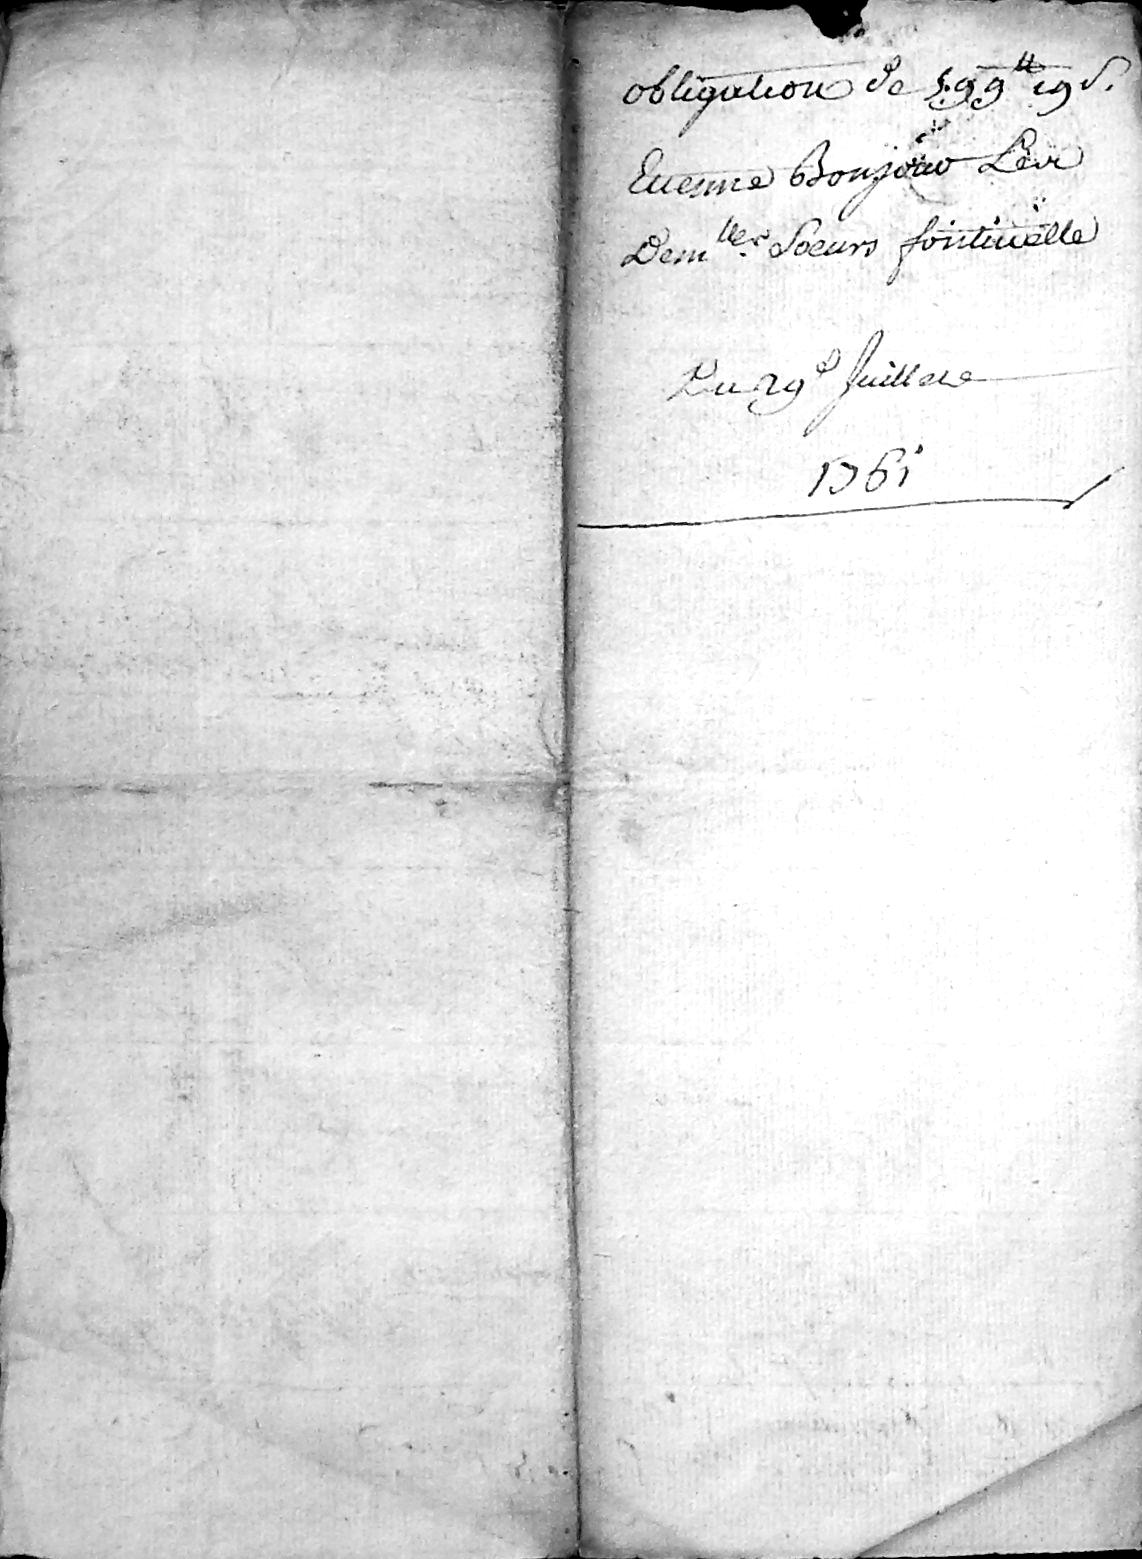 obligation de 599ᵗᵗ 19 s.
Etienne Bonjour Les
Demˡˡᵉˢ Soeurs fontinelle
Du 29ᵉ Juillet
1761